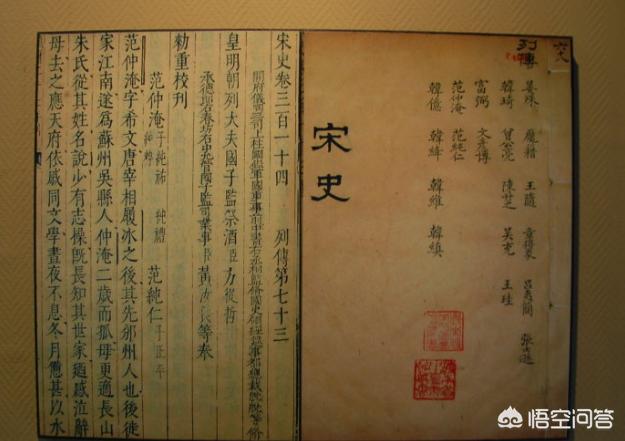 列傳
晏殊 龐籍 王隨 章得象 呂夷簡 張士遜
韓琦 曾公亮 陳升之 吳充 王珪
富弼 文彥博
范仲淹 范純仁
韓億 韓絳 韓維 韓縝
宋史
宋史卷三百一十四 列傳第七十三
開府儀同三司上柱國錄軍國重事前中書右丞相監修國史領經筵事都總裁脫脫等修
皇明朝列大夫國子監祭酒臣方從哲
司業事臣黃汝良等奉
勅重校刊
范仲淹 子純祐 純禮 純粹 范純仁 子正平
范仲淹字希文唐宰相履冰之後其先邠州人也後徙
家江南遂爲蘇州吳縣人仲淹二歲而孤母更適長山
朱氏從其姓名說少有志操旣長知其世家迺感泣辭
母去之應天府依戚同文學晝夜不息冬月憊甚以水
悟空问答